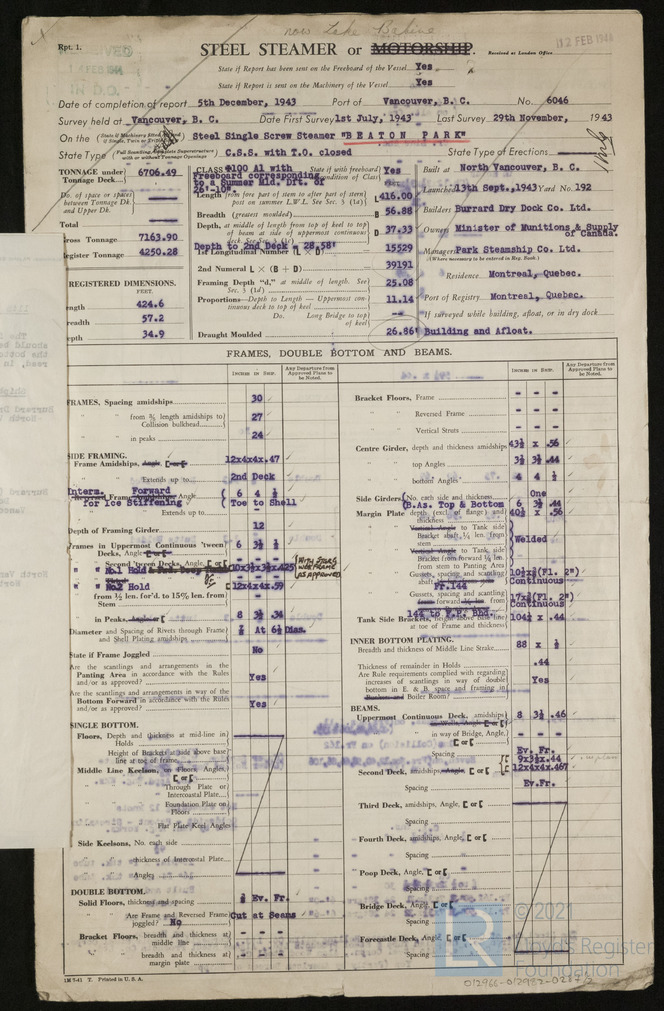 now Lake Babine
Rpt. 1.
STEEL STEAMER or MOTORSHIP.
Received at London Office
12 FEB 1944
State if Report has been sent on the Freeboard of the Vessel Yes
State if Report is sent on the Machinery of the Vessel Yes
Date of completion of report 5th December, 1943 Port of Vancouver, B. C. No. 6046
Survey held at Vancouver, B. C. Date First Survey 1st July, 1943 Last Survey 29th November, 1943
On the (State if Machinery fitted Aft and if Single, Twin or Triple Screw) Steel Single Screw Steamer "BEATON PARK"
State Type (Full Scantling, Complete Superstructure with or without Tonnage Openings) C.S.S. with T.O. closed State Type of Erections
TONNAGE under Tonnage Deck 6706.49
Do. of space or spaces between Tonnage Dk. and Upper Dk.
Total
Gross Tonnage 7163.90
Register Tonnage 4250.28
REGISTERED DIMENSIONS.
FEET.
Length 424.6
Breadth 57.2
Depth 34.9
CLASS 100 A1 with Freeboard corresponding to a Summer Mld. Drft. of 26'-10" State if with freeboard condition of Class Yes
Length from fore part of stem to after part of stern post on summer L.W.L. See Sec. 3 (1a) L 416.00
Breadth (greatest moulded) B 56.88
Depth, at middle of length from top of keel to top of beam at side of uppermost continuous deck. See Sec. 3 (1c) D 37.33
Depth to 2nd Deck = 28.58'
1st Longitudinal Number (L × D) 15529
2nd Numeral L × (B + D) 39191
Framing Depth "d," at middle of length. See Sec. 3 (1d) 25.08
Proportions—Depth to Length—Uppermost continuous deck to top of keel 11.14
Do. Long Bridge to top of keel
Draught Moulded 26.86'
Built at North Vancouver, B. C.
Launched 13th Sept., 1943 Yard No. 192
Builders Burrard Dry Dock Co. Ltd.
Owners Minister of Munitions & Supply of Canada.
Managers Park Steamship Co. Ltd.
(Where necessary to be entered in Reg. Book.)
Residence Montreal, Quebec.
Port of Registry Montreal, Quebec.
If surveyed while building, afloat, or in dry dock
Building and Afloat.
FRAMES, DOUBLE BOTTOM AND BEAMS.
INCHES IN SHIP.
Any Departure from Approved Plans to be Noted.
FRAMES, Spacing amidships 30
" " from ⅗ length amidships to Collision bulkhead 27
" " in peaks 24
SIDE FRAMING.
Frame Amidships, Angle [ or [ 12x4x4x.47
" " Extends up to 2nd Deck
Interm. Forward for Ice Stiffening Reversed Frame Amidships Angle 6 4 ½ Toe to Shell
" " Extends up to -
Depth of Framing Girder 12
Frames in Uppermost Continuous 'tween Decks, Angle [ or [ 6 3½ ½
" " Second 'tween Decks, Angle, [ or [
" " No.1 Hold 10x3½x3½x.425 (WITH STRONG WEB FRAME AS APPROVED)
" " No.2 Hold 12x4x4x.59
" " from ⅕ len. for'd. to 15% len. from Stem -
" " in Peaks, Angle or [ 8 3½ .34
Diameter and Spacing of Rivets through Frame and Shell Plating amidships ⅞ At 6⅛ Dias.
State if Frame Joggled No
Are the scantlings and arrangements in the Panting Area in accordance with the Rules and/or as approved? Yes
Are the scantlings and arrangements in way of the Bottom Forward in accordance with the Rules and/or as approved? Yes
SINGLE BOTTOM.
Floors, Depth and thickness at mid-line in Holds
" Height of Brackets at side above base line at toe of frame
Middle Line Keelson, on Floors, Angles, [ or [
" " Through Plate or Intercoastal Plate
" " Foundation Plate on Floors
" " Flat Plate Keel Angles
Side Keelsons, No. each side
" " thickness of Intercostal Plate
" " Angles
DOUBLE BOTTOM.
Solid Floors, thickness and spacing ½ Ev. Fr.
" Are Frame and Reversed Frame joggled? No Cut at Seams
Bracket Floors, breadth and thickness at middle line - - -
" " breadth and thickness at margin plate - - -
Bracket Floors, Frame - - -
" " Reversed Frame - - -
" " Vertical Struts - - -
Centre Girder, depth and thickness amidships 43½ x .56
" " top Angles 3½ 3½ .44
" " bottom Angles 4 4 ½
Side Girders, No. each side and thickness One
(B.As. Top & Bottom 6 3½ .44
Margin Plate depth (excl. of flange) and thickness 40½ x .56
" " Vertical Angle to Tank side Bracket abaft ¼ len. from stem Welded
" " Vertical Angle to Tank side Bracket from forward ¼ len. from stem to Panting Area
" " Gussets, spacing and scantling abaft Fr. 144 10½x½(Fl. 2") Continuous
" " Gussets, spacing and scantling from forward ¼ len. from 144 to F.P. Bhd. 17x½(Fl. 2") Continuous
Tank Side Brackets, height above base line at toe of Frame and thickness 104½ x .44
INNER BOTTOM PLATING.
Breadth and thickness of Middle Line Strake 88 x ½
Thickness of remainder in Holds .44
Are Rule requirements complied with regarding increases of scantlings in way of double bottom in E. & B. space and framing in Bunkers and Boiler Room? Yes
BEAMS.
Uppermost Continuous Deck, amidships 8 3½ .46
" " in way of Bridge, Angle, [ or [
Spacing Ev. Fr.
Second Deck, amidships, Angle, [ or [ 9x3½x.44 12x4x4x.467
Spacing Ev.Fr.
Third Deck, amidships, Angle, [ or [
Spacing
Fourth Deck, amidships, Angle, [ or [
Spacing
Poop Deck, Angle, [ or [
Spacing
Bridge Deck, Angle, [ or [
Spacing
Forecastle Deck, Angle, [ or [
Spacing
1M 7-41 T. Printed in U. S. A.
© 2021
Lloyd's Register
Foundation
012966-012982-0287/2